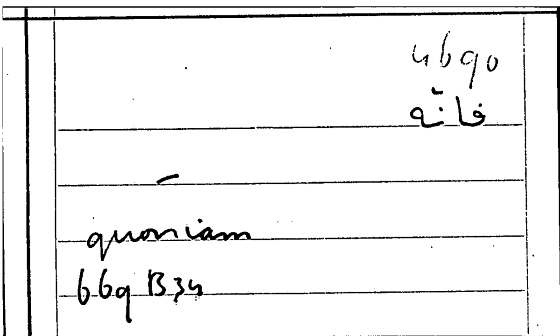 4690
فانّه
–
quoniam
669 B34